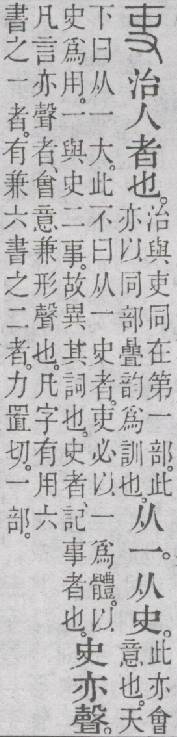 吏 治人者也。治與吏同在第一部。此亦以同部疊韵爲訓也。从一。从史。此亦會意也。天
下曰从一大。此不曰从一史者。吏必以一爲體。以史爲用。一與史二事。故異其詞也。史者、記事者也。史亦聲。
凡言亦聲者、會意兼形聲也。凡字有用六書之一者。有兼六書之二者。力置切。一部。